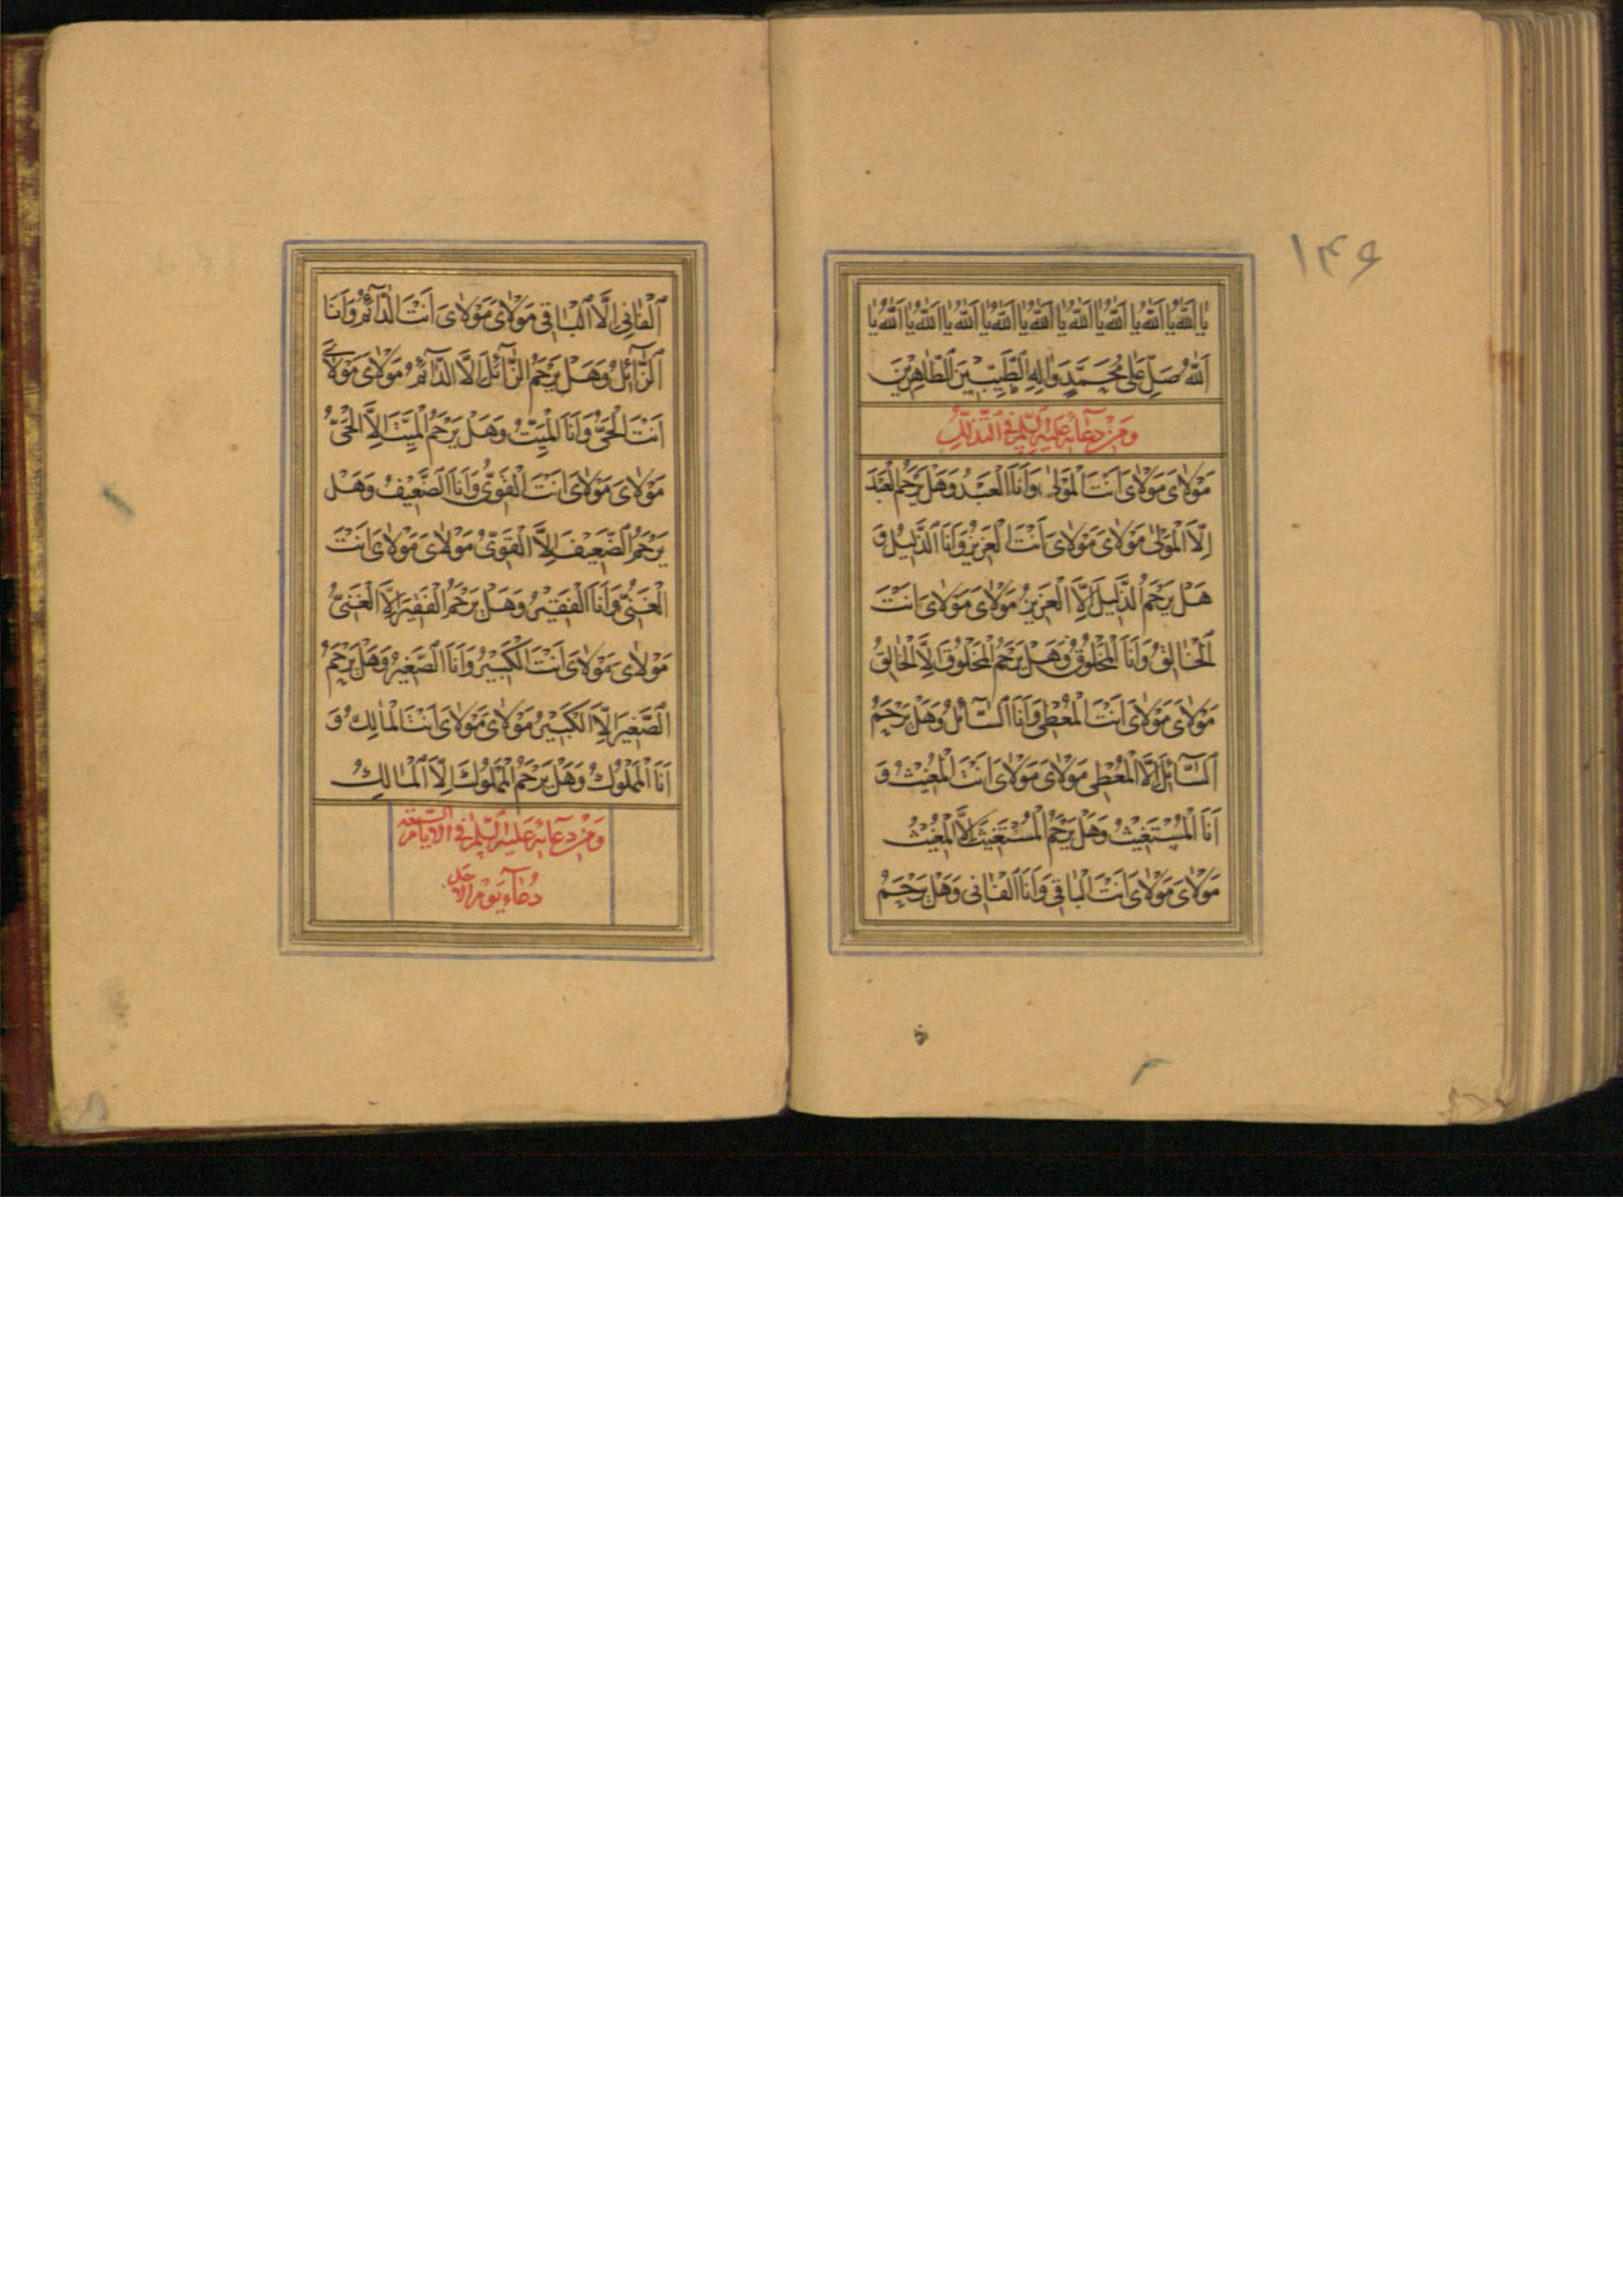 ۱۴۶
يا اَللّٰهُ يا اَللّٰهُ يا اَللّٰهُ يا اَللّٰهُ يا اَللّٰهُ يا اَللّٰهُ يا اَللّٰهُ يا اَللّٰهُ يا
اَللّٰهُ صَلِّ عَلٰى مُحَمَّدٍ وَاٰلِهِ الطَّيِّبينَ الطّاهِرينَ
وَمِنْ دُعآئِهِ عَلَيْهِ السَّلامُ فِى التَّذَلُّلِ
مَوْلاىَ مَوْلاىَ اَنْتَ الْمَوْلٰى وَاَنَا الْعَبْدُ وَهَلْ يَرْحَمُ الْعَبْدَ
اِلَّا الْمَوْلٰى مَوْلاىَ مَوْلاىَ اَنْتَ الْعَزيزُ وَاَنَا الذَّليلُ وَ
هَلْ يَرْحَمُ الذَّليلَ اِلَّا الْعَزيزُ مَوْلاىَ مَوْلاىَ اَنْتَ
الْخالِقُ وَاَنَا الْمَخْلُوقُ وَهَلْ يَرْحَمُ الْمَخْلُوقَ اِلَّا الْخالِقُ
مَوْلاىَ مَوْلاىَ اَنْتَ الْمُعْطى وَاَنَا السّآئِلُ وَهَلْ يَرْحَمُ
السّآئِلَ اِلَّا الْمُعْطى مَوْلاىَ مَوْلاىَ اَنْتَ الْمُغيثُ وَ
اَنَا الْمُسْتَغيثُ وَهَلْ يَرْحَمُ الْمُسْتَغيثَ اِلَّا الْمُغيثُ
مَوْلاىَ مَوْلاىَ اَنْتَ الْباقى وَاَنَا الْفانى وَهَلْ يَرْحَمُ
الْفانِىَ اِلَّا الْباقى مَوْلاىَ مَوْلاىَ اَنْتَ الدّآئِمُ وَاَنَا
الزّآئِلُ وَهَلْ يَرْحَمُ الزّآئِلَ اِلَّا الدّآئِمُ مَوْلاىَ مَوْلاىَ
اَنْتَ الْحَىُّ وَاَنَا الْمَيِّتُ وَهَلْ يَرْحَمُ الْمَيِّتَ اِلَّا الْحَىُّ
مَوْلاىَ مَوْلاىَ اَنْتَ الْقَوِىُّ وَاَنَا الضَّعيفُ وَهَلْ
يَرْحَمُ الضَّعيفَ اِلَّا الْقَوِىُّ مَوْلاىَ مَوْلاىَ اَنْتَ
الْغَنِىُّ وَاَنَا الْفَقيرُ وَهَلْ يَرْحَمُ الْفَقيرَ اِلَّا الْغَنِىُّ
مَوْلاىَ مَوْلاىَ اَنْتَ الْكَبيرُ وَاَنَا الصَّغيرُ وَهَلْ يَرْحَمُ
الصَّغيرَ اِلَّا الْكَبيرُ مَوْلاىَ مَوْلاىَ اَنْتَ الْمالِكُ وَ
اَنَا الْمَمْلُوكُ وَهَلْ يَرْحَمُ الْمَمْلُوكَ اِلَّا الْمالِكُ
وَمِنْ دُعآئِهِ عَلَيْهِ السَّلامُ فِى الْاَيّامِ السَّبْعَةِ
دُعآءُ يَوْمِ الْاَحَدِ